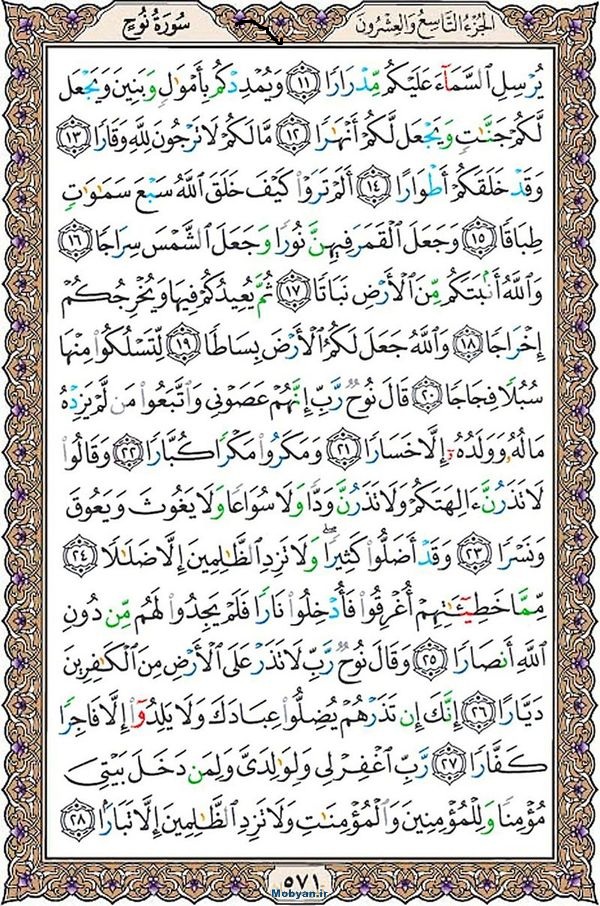 الجزء التاسع والعشرون
سورة نوح
يُرْسِلِ ٱلسَّمَآءَ عَلَيْكُم مِّدْرَارًا ١١ وَيُمْدِدْكُم بِأَمْوَٰلٍ وَبَنِينَ وَيَجْعَل
لَّكُمْ جَنَّـٰتٍ وَيَجْعَل لَّكُمْ أَنْهَـٰرًا ١٢ مَّا لَكُمْ لَا تَرْجُونَ لِلَّهِ وَقَارًا ١٣
وَقَدْ خَلَقَكُمْ أَطْوَارًا ١٤ أَلَمْ تَرَوْا۟ كَيْفَ خَلَقَ ٱللَّهُ سَبْعَ سَمَـٰوَٰتٍ
طِبَاقًا ١٥ وَجَعَلَ ٱلْقَمَرَ فِيهِنَّ نُورًا وَجَعَلَ ٱلشَّمْسَ سِرَاجًا ١٦
وَٱللَّهُ أَنۢبَتَكُم مِّنَ ٱلْأَرْضِ نَبَاتًا ١٧ ثُمَّ يُعِيدُكُمْ فِيهَا وَيُخْرِجُكُمْ
إِخْرَاجًا ١٨ وَٱللَّهُ جَعَلَ لَكُمُ ٱلْأَرْضَ بِسَاطًا ١٩ لِّتَسْلُكُوا۟ مِنْهَا
سُبُلًا فِجَاجًا ٢٠ قَالَ نُوحٌ رَّبِّ إِنَّهُمْ عَصَوْنِى وَٱتَّبَعُوا۟ مَن لَّمْ يَزِدْهُ
مَالُهُۥ وَوَلَدُهُۥٓ إِلَّا خَسَارًا ٢١ وَمَكَرُوا۟ مَكْرًا كُبَّارًا ٢٢ وَقَالُوا۟
لَا تَذَرُنَّ ءَالِهَتَكُمْ وَلَا تَذَرُنَّ وَدًّا وَلَا سُوَاعًا وَلَا يَغُوثَ وَيَعُوقَ
وَنَسْرًا ٢٣ وَقَدْ أَضَلُّوا۟ كَثِيرًا ۖ وَلَا تَزِدِ ٱلظَّـٰلِمِينَ إِلَّا ضَلَـٰلًا ٢٤
مِّمَّا خَطِيٓـَٔـٰتِهِمْ أُغْرِقُوا۟ فَأُدْخِلُوا۟ نَارًا فَلَمْ يَجِدُوا۟ لَهُم مِّن دُونِ
ٱللَّهِ أَنصَارًا ٢٥ وَقَالَ نُوحٌ رَّبِّ لَا تَذَرْ عَلَى ٱلْأَرْضِ مِنَ ٱلْكَـٰفِرِينَ
دَيَّارًا ٢٦ إِنَّكَ إِن تَذَرْهُمْ يُضِلُّوا۟ عِبَادَكَ وَلَا يَلِدُوٓا۟ إِلَّا فَاجِرًا
كَفَّارًا ٢٧ رَّبِّ ٱغْفِرْ لِى وَلِوَٰلِدَىَّ وَلِمَن دَخَلَ بَيْتِىَ
مُؤْمِنًا وَلِلْمُؤْمِنِينَ وَٱلْمُؤْمِنَـٰتِ وَلَا تَزِدِ ٱلظَّـٰلِمِينَ إِلَّا تَبَارًۢا ٢٨
٥٧١
Mobyan.ir